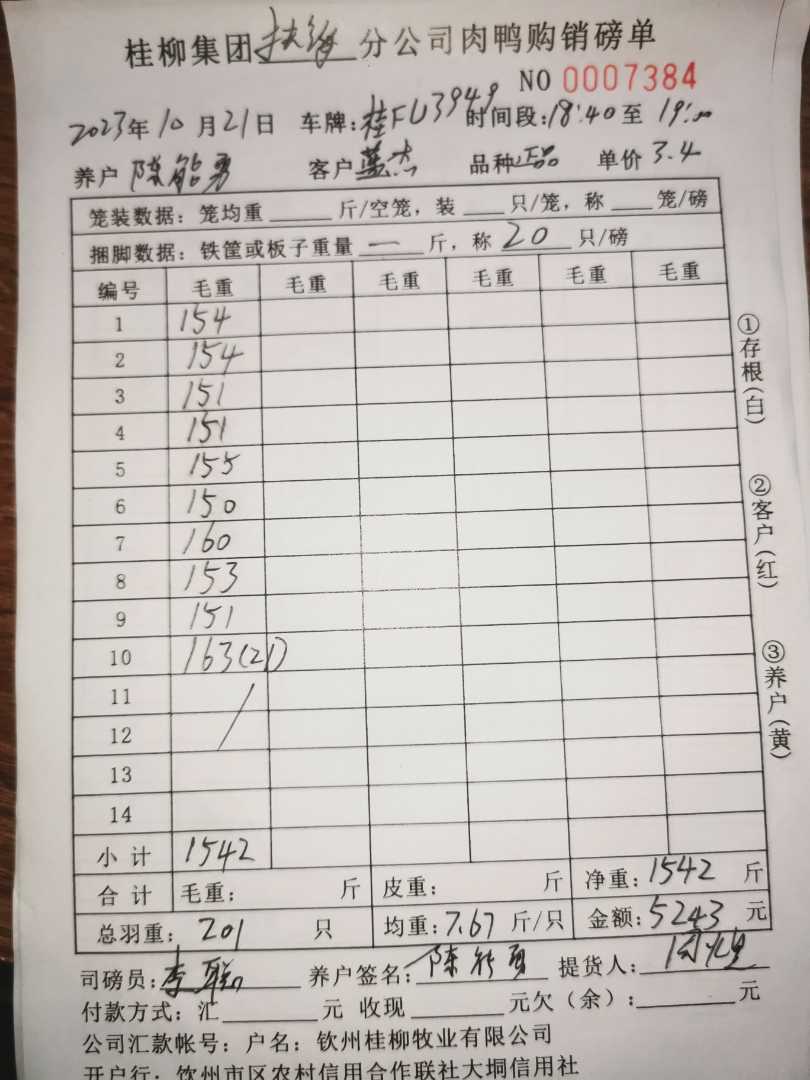 桂柳集团扶绥分公司肉鸭购销磅单
NO 0007384
2023年10月21日 车牌:桂FU3949 时间段:18:40至19:00
养户 陈能勇 客户 蓝杰 品种 正品 单价 3.4
笼装数据: 笼均重 斤/空笼, 装 只/笼, 称 笼/磅
捆脚数据: 铁筐或板子重量 一 斤, 称 20 只/磅
编号 毛重 毛重 毛重 毛重 毛重 毛重
1 154
2 154
3 151
4 151
5 155
6 150
7 160
8 153
9 151
10 163(21)
11
12
13
14
小计 1542
合计 毛重: 斤 皮重: 斤 净重: 1542 斤
总羽重: 201 只 均重: 7.67 斤/只 金额: 5243 元
司磅员: 李联 养户签名: 陈能勇 提货人:
付款方式: 汇 元 收现 元欠(余): 元
公司汇款帐号: 户名: 钦州桂柳牧业有限公司
开户行: 钦州市区农村信用合作联社大垌信用社
①存根(白)
②客户(红)
③养户(黄)